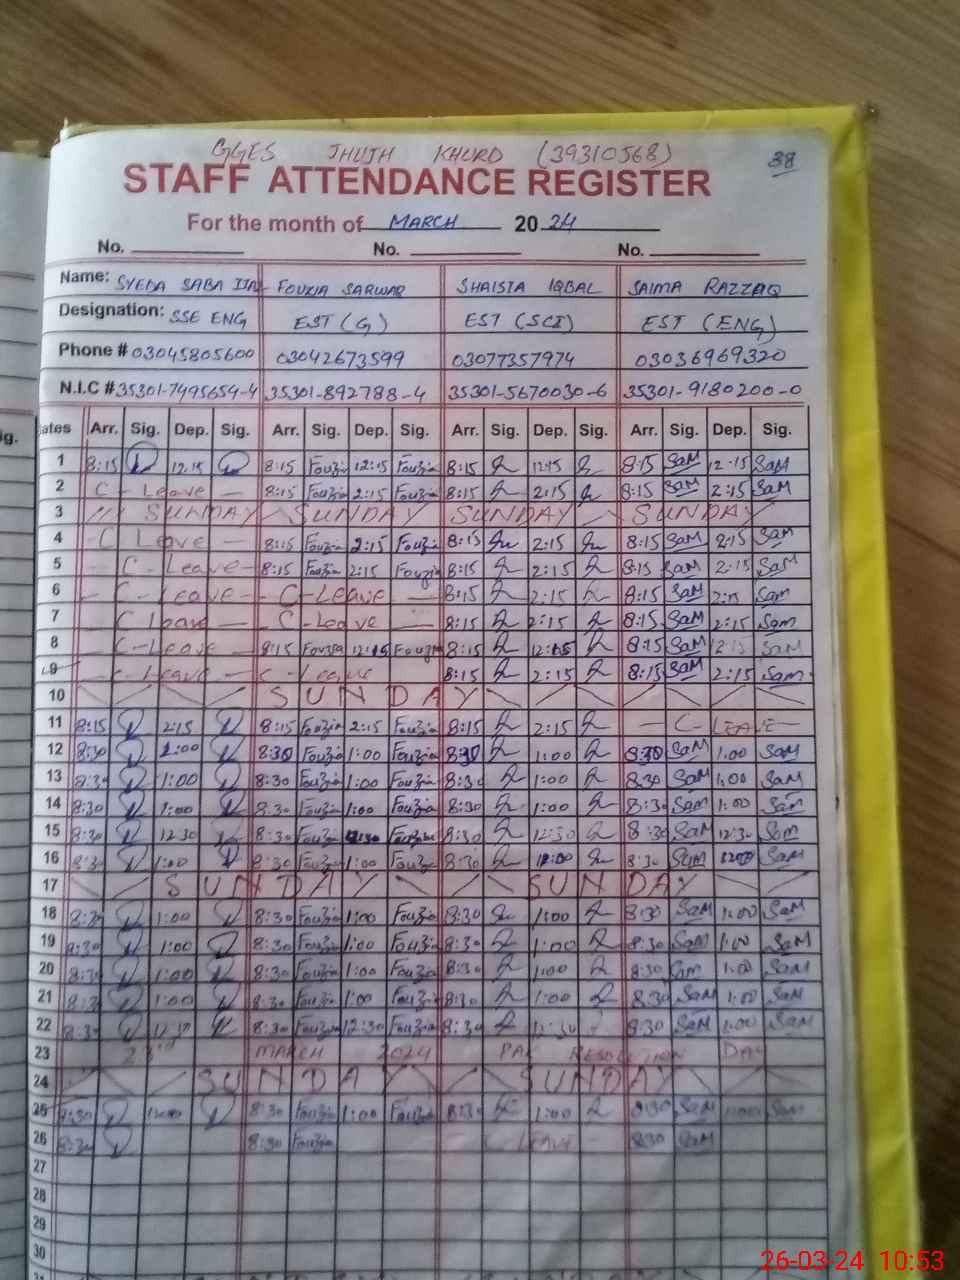 GGES JHUJH KHURD (39310568) 38
STAFF ATTENDANCE REGISTER
For the month of MARCH 20 24
No. No. No.
Name: SYEDA SABA FOUZIA SARWAR SHAISTA IQBAL SAIMA RAZZAQ
Designation: SSE ENG EST (G) EST (SCI) EST (ENG)
Phone # 03045805600 03042673599 03077357974 03036969320
N.I.C # 35301-7495654-4 35301-892788-4 35301-5670030-6 35301-9180200-0
ig. ates Arr. Sig. Dep. Sig. Arr. Sig. Dep. Sig. Arr. Sig. Dep. Sig. Arr. Sig. Dep. Sig.
1 8:15 12:15 8:15 Fouzia 12:15 Fouzia 8:15 12:15 8:15 SaM 12:15 SaM
2 C - Leave - 8:15 Fouzia 2:15 Fouzia 8:15 2:15 8:15 SaM 2:15 SaM
3 SUNDAY SUNDAY SUNDAY SUNDAY
4 - C Leave - 8:15 Fouzia 2:15 Fouzia 8:15 2:15 8:15 SaM 2:15 SaM
5 - C - Leave - 8:15 Fouzia 2:15 Fouzia 8:15 2:15 8:15 SaM 2:15 SaM
6 - C - Leave - - C - Leave - 8:15 2:15 8:15 SaM 2:15 Sam
7 - C Leave - - C - Leave - 8:15 2:15 8:15 SaM 2:15 Sam
8 - C - Leave - 8:15 Fouzia 12:15 Fouzia 8:15 12:15 8:15 SaM 12:15 SaM
9 - C - Leave - C - Leave 8:15 2:15 8:15 SaM 2:15 Sam
10 SUNDAY
11 8:15 2:15 8:15 Fouzia 2:15 Fouzia 8:15 2:15 - C - LEAVE -
12 8:30 1:00 8:30 Fouzia 1:00 Fouzia 8:30 1:00 8:30 SaM 1:00 SaM
13 8:30 1:00 8:30 Fouzia 1:00 Fouzia 8:30 1:00 8:30 SaM 1:00 SaM
14 8:30 1:00 8:30 Fouzia 1:00 Fouzia 8:30 1:00 8:30 SaM 1:00 Sam
15 8:30 12:30 8:30 Fouzia 12:30 Fouzia 8:30 12:30 8:30 SaM 12:30 Sam
16 8:30 1:00 8:30 Fouzia 1:00 Fouzia 8:30 1:00 8:30 Sam SaM
17 SUNDAY SUNDAY
18 8:30 1:00 8:30 Fouzia 1:00 Fouzia 8:30 1:00 8:30 SaM 1:00 SaM
19 8:30 1:00 8:30 Fouzia 1:00 Fouzia 8:30 1:00 8:30 Sam 1:00 SaM
20 8:30 1:00 8:30 Fouzia 1:00 Fouzia 8:30 1:00 8:30 Sam 1:00 SaM
21 8:30 1:00 8:30 Fouzia 1:00 Fouzia 8:30 1:00 8:30 SaM 1:00 SaM
22 8:30 8:30 Fouzia 12:30 Fouzia 8:30 12:30 8:30 SaM 1:00 SaM
23 23rd MARCH 2024 PAK RESOLUTION DAY
24 SUNDAY SUNDAY
25 8:30 1:00 8:30 Fouzia 1:00 Fouzia 8:30 1:00 8:30 SaM Sam
26 8:30 8:30 Fouzia C LEAVE 8:30 SaM
27
28
29
30
26-03-24 10:53